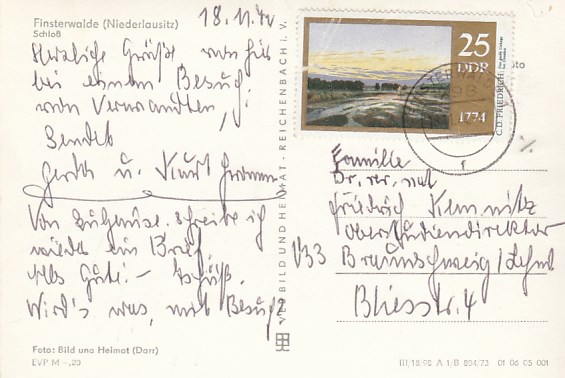 Finsterwalde (Niederlausitz)
Schloß
18.11.
Herzliche Grüße von hier
bei einem Besuch
von Verwandten,
Sendet
Gerth u. Kurt
Von Zuhause schreibe ich
wieder ein Brief.
Alles Gute! – Tschüß.
Wird's was, mit Besuch?
Foto: Bild und Heimat (Darr)
EVP M –,20
VEB BILD UND HEIMAT - REICHENBACH i. V.
25
DDR
1774
C. D. FRIEDRICH
Familie
Dr. rer. nat.
Friedrich Kemnitz
Oberstudiendirektor
V33 Braunschweig / Lehnd
Bliesstr. 4
III/18/98 A 1/B 804/73 01 06 05 001